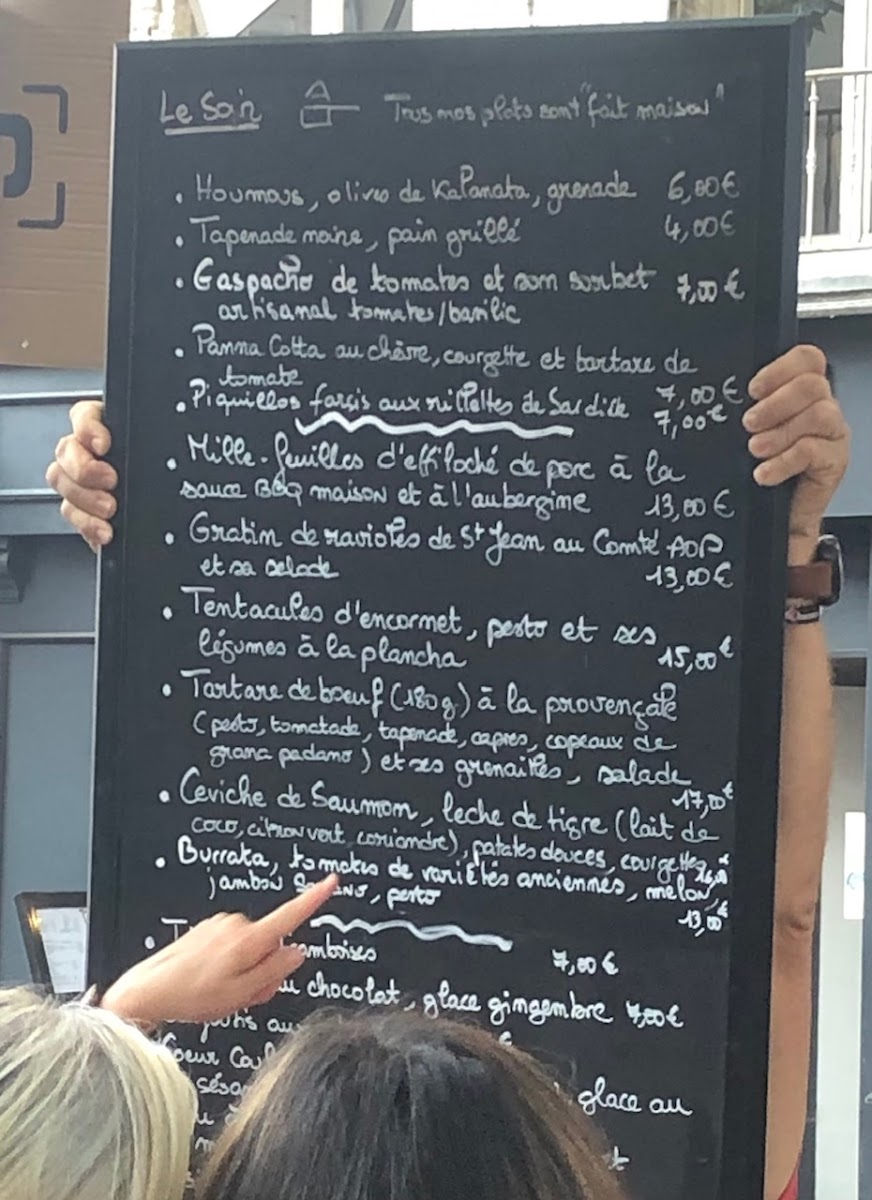 Le Soir Tous mos plats sont "fait maison"
• Houmous, olives de Kalamata, grenade 6,00€
• Tapenade noire, pain grillé 4,00€
• Gaspacho de tomates et son sorbet 7,00€
artisanal tomates/basilic
• Panna Cotta au chèvre, courgette et tartare de
tomate 7,00€
• Piquillos farcis aux rillettes de Sardine 7,00€
• Mille-feuilles d'effiloché de porc à la
sauce BBQ maison et à l'aubergine 13,00€
• Gratin de ravioles de St Jean au Comté AOP
et sa salade 13,00€
• Tentacules d'encornet, pesto et ses
légumes à la plancha 15,00€
• Tartare de boeuf (180g) à la provençale
(pesto, tomatade, tapenade, capres, copeaux de
grana padano) et ses grenailles, salade
17,00€
• Ceviche de Saumon, leche de tigre (lait de
coco, citron vert, coriandre), patates douces, courgettes
• Burrata, tomates de variétés anciennes, melon,
jambon, pesto 13,00€
framboises 7,00€
au chocolat, glace gingembre 7,00€
au
Coeur
glace au